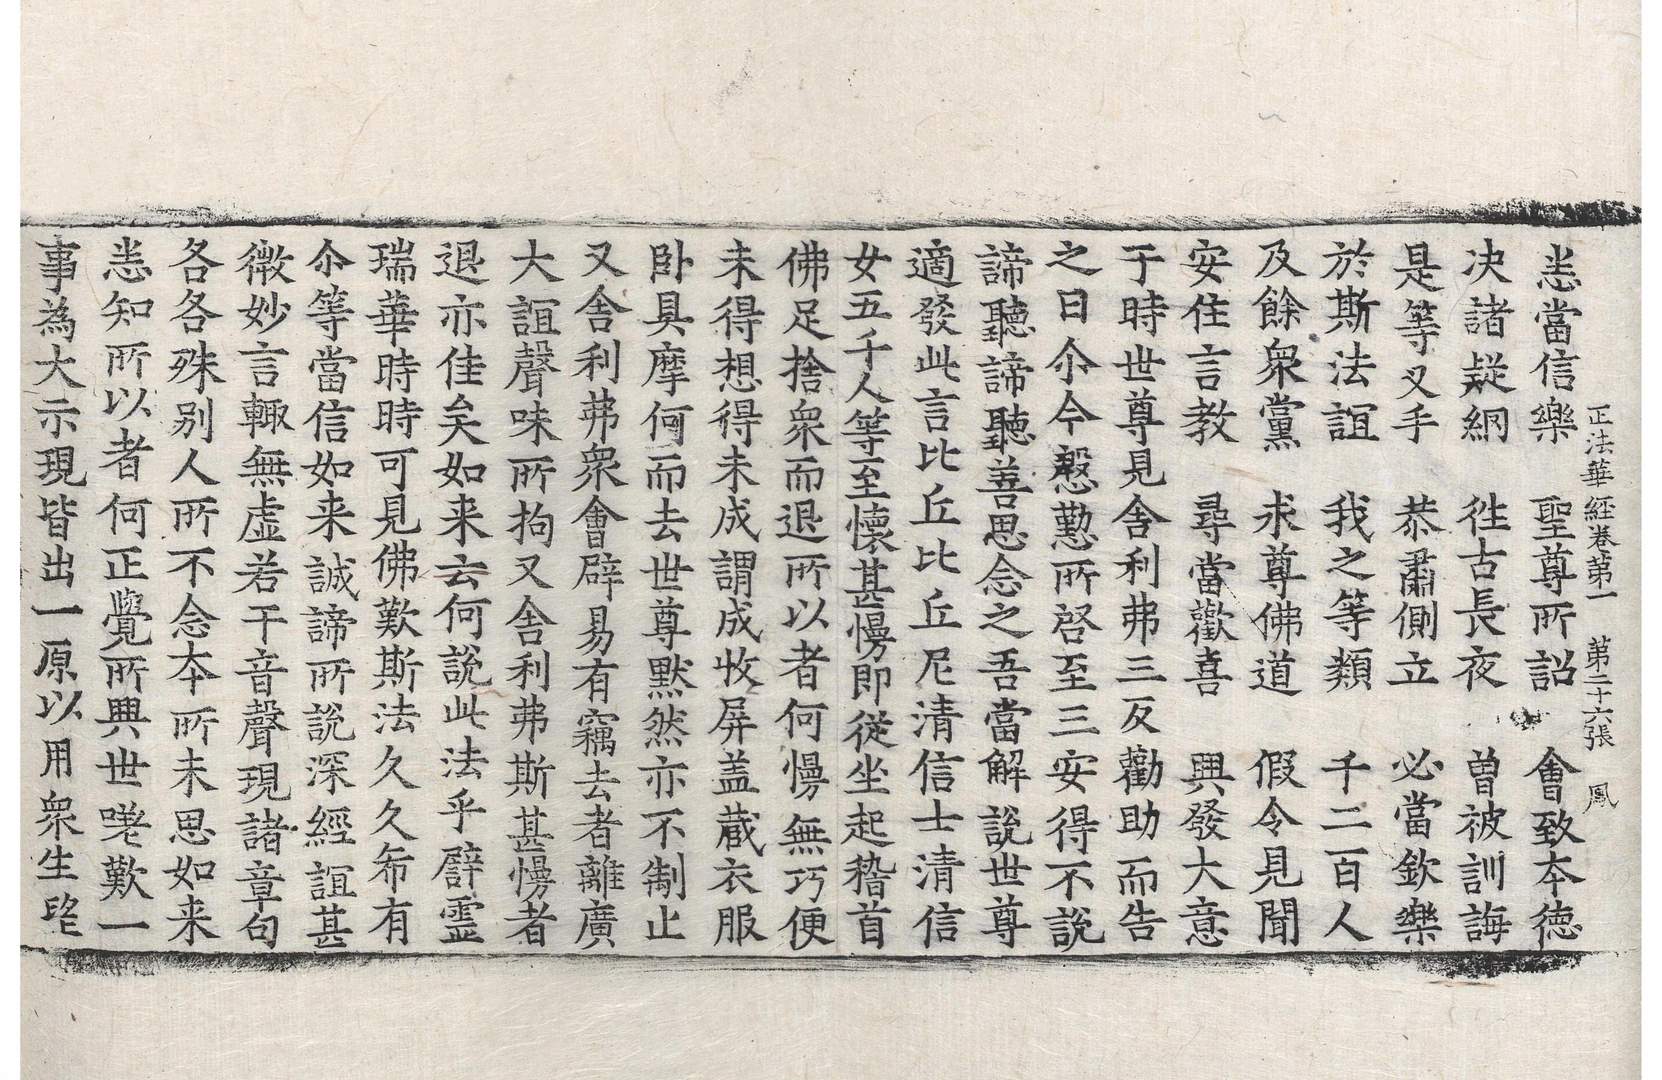 正法華經卷第一　第二十六張　鳳
恚當信樂　聖尊所詔　會致夲德
决諸疑網　徃古長夜　曽被訓誨
是等叉手　恭肅側立　必當欽樂
於斯法誼　我之等類　千二百人
及餘衆黨　求尊佛道　假令見聞
安住言教　尋當歡喜　興發大意
于時世尊見舍利弗三反勸助而告
之曰尒今慇懃所啓至三安得不說
諦聽諦聽善思念之吾當解說世尊
適發此言比丘比丘尼清信士清信
女五千人等至懷甚慢即從坐起稽首
佛足捨衆而退所以者何慢無巧便
未得想得未成謂成收屏盖蔵衣服
卧具摩何而去世尊默然亦不制止
又舍利弗衆會辟易有竊去者離廣
大誼聲味所拘又舍利弗斯甚慢者
退亦佳矣如来云何說此法乎譬靈
瑞華時時可見佛歎斯法久久希有
尒等當信如来誠諦所說深經誼甚
微妙言輙無虚若干音聲現諸章句
各各殊别人所不念夲所未思如来
恚知所以者何正覺所興世嗟歎一
事為大示現皆出一原以用衆生望